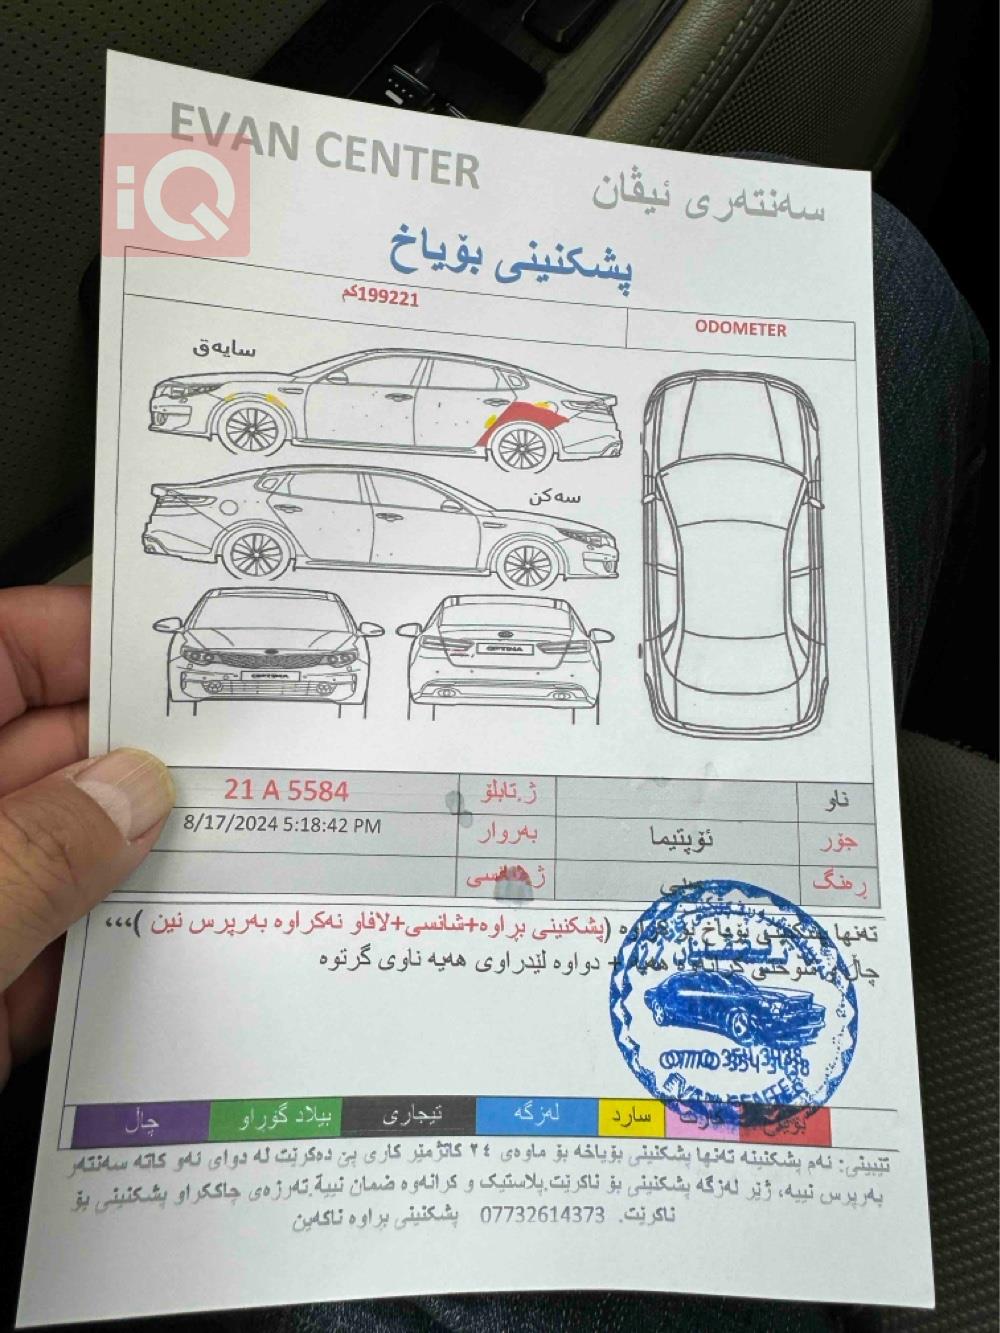 EVAN CENTER
سەنتەری ئیڤان
iQ
پشکنینی بۆیاخ
199221کم
ODOMETER
سایەق
سەکن
OPTIMA
OPTIMA
ناو
ژ.تابلۆ
21 A 5584
جۆر
ئۆپتیما
بەروار
8/17/2024 5:18:42 PM
ڕەنگ
تەنها پشکنینی بۆیاخ بۆ کراوە (پشکنینی بڕاوە+شانسی+لافاو نەکراوە بەرپرس نین )،،،
+ دواوە لێدراوی هەیە ناوی گرتوە
سارد
لەزگە
تیجاری
بیلاد گۆڕاو
چاڵ
تێبینی: ئەم پشکنینە تەنها پشکنینی بۆیاخە بۆ ماوەی ٢٤ کاتژمێر کاری پێ دەکرێت لە دوای ئەو کاتە سەنتەر
بەرپرس نییە، ژێر لەزگە پشکنینی بۆ ناکرێت.پلاستیک و کرانەوە ضمان نییە.تەرزەی چاککراو پشکنینی بۆ
ناکرێت. 07732614373 پشکنینی براوە ناکەین